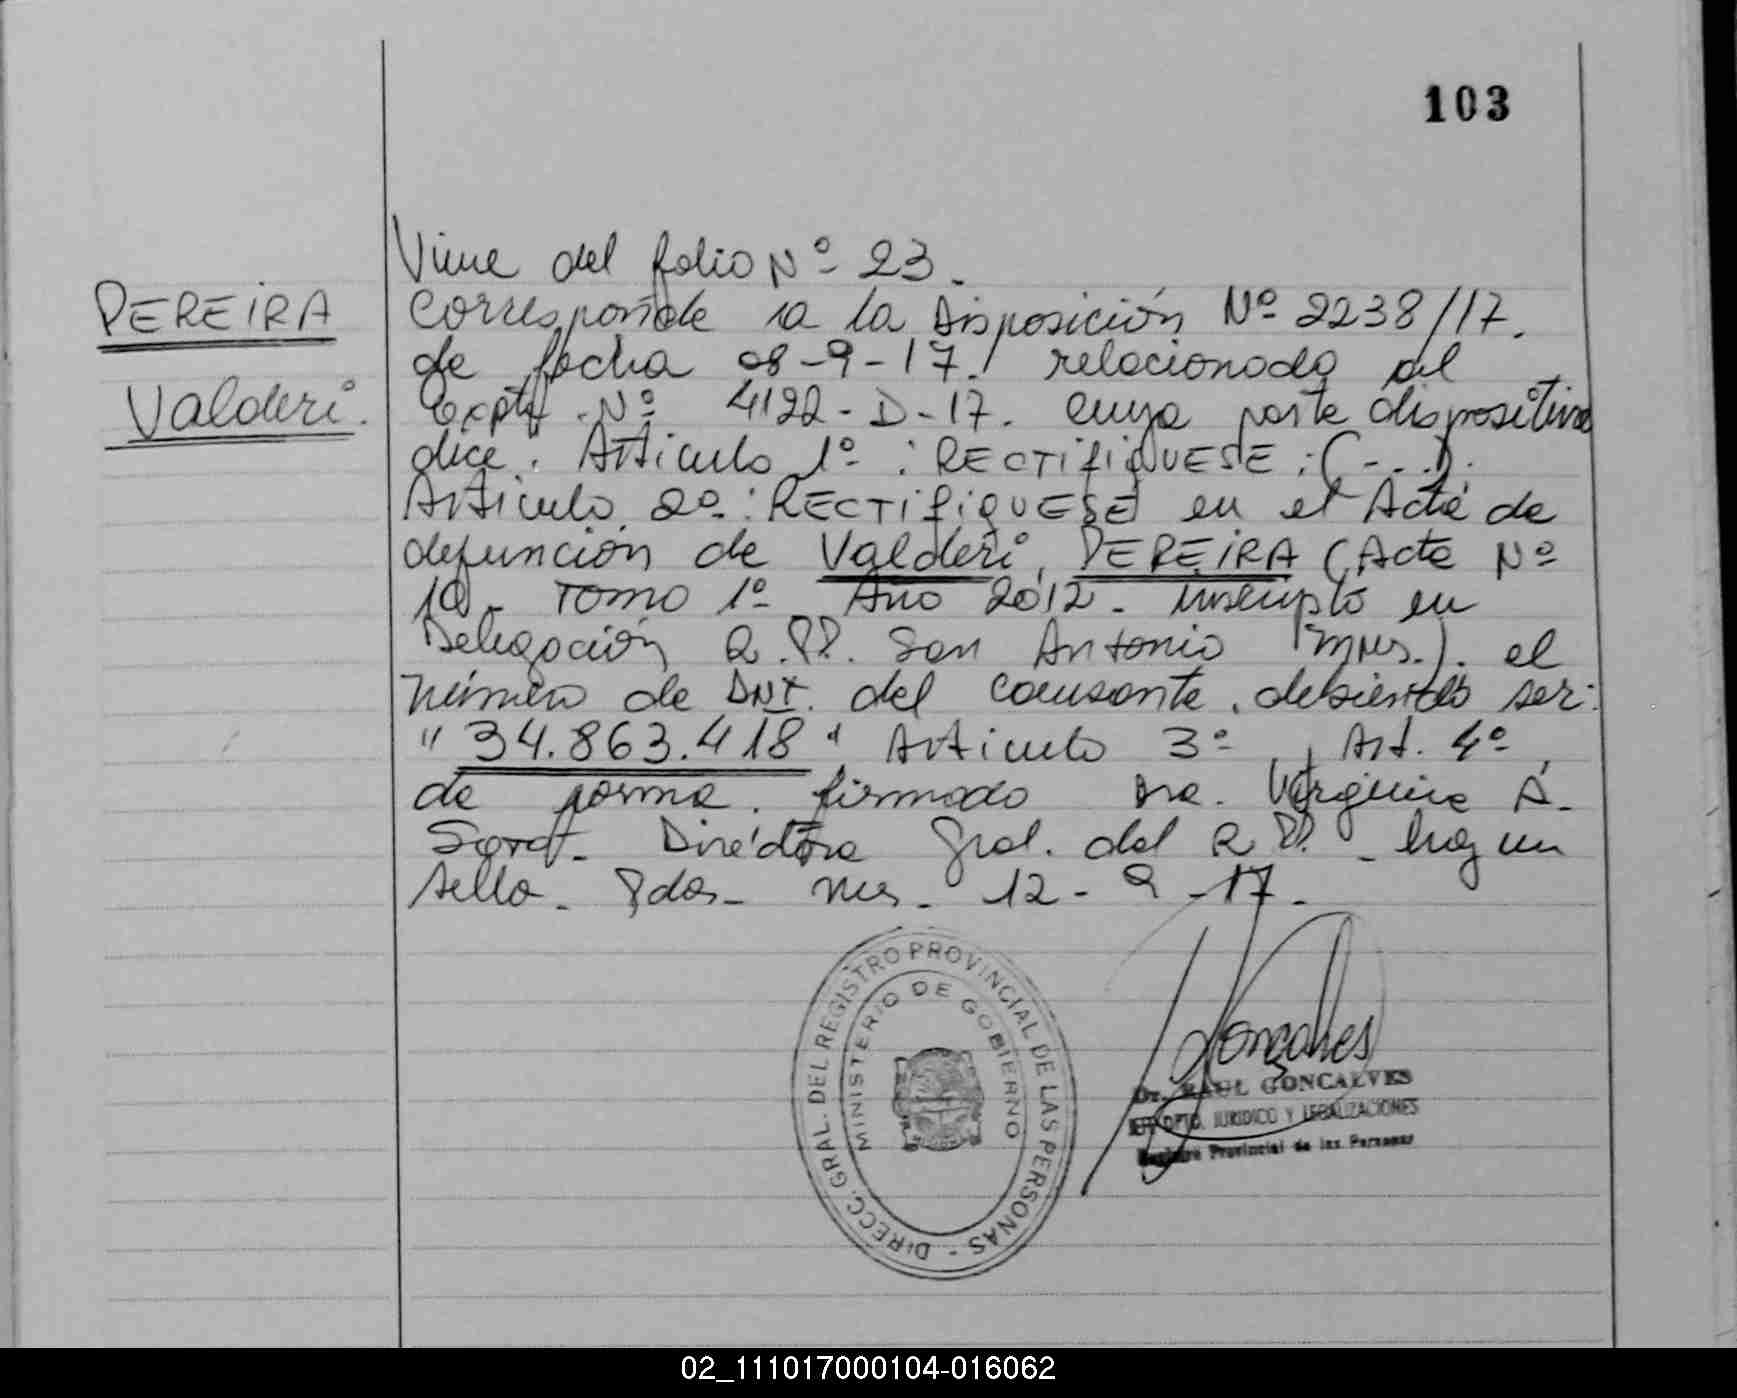 103
PEREIRA
Valderi.
Viene del folio Nº 23.
Corresponde a la Disposición Nº 2238/17.
de fecha 08-9-17. relacionado al
Expte. Nº 4122-D-17. cuya parte dispositiva
dice. Artículo 1º: RECTIFIQUESE: (-...).
Artículo 2º: RECTIFIQUESE en el Acta de
defunción de Valderi PEREIRA (Acta Nº
Tomo 1º Año 2012. inscripto en
Delegación R.PP. San Antonio Mnes.). el
número de DNI. del causante. debiendo ser:
"34.863.418" Artículo 3º, Art. 4º,
de forma. firmado Dra. Virginia A.
Directora Gral. del R.PP. - hay un
sello. Pdas. Mnes. 12-9-17.
DIRECC. GRAL. DEL REGISTRO PROVINCIAL DE LAS PERSONAS -
MINISTERIO DE GOBIERNO
Gonçalves
Dr. RAUL GONCALVES
JEFE DPTO. JURIDICO Y LEGALIZACIONES
Registro Provincial de las Personas
02_111017000104-016062